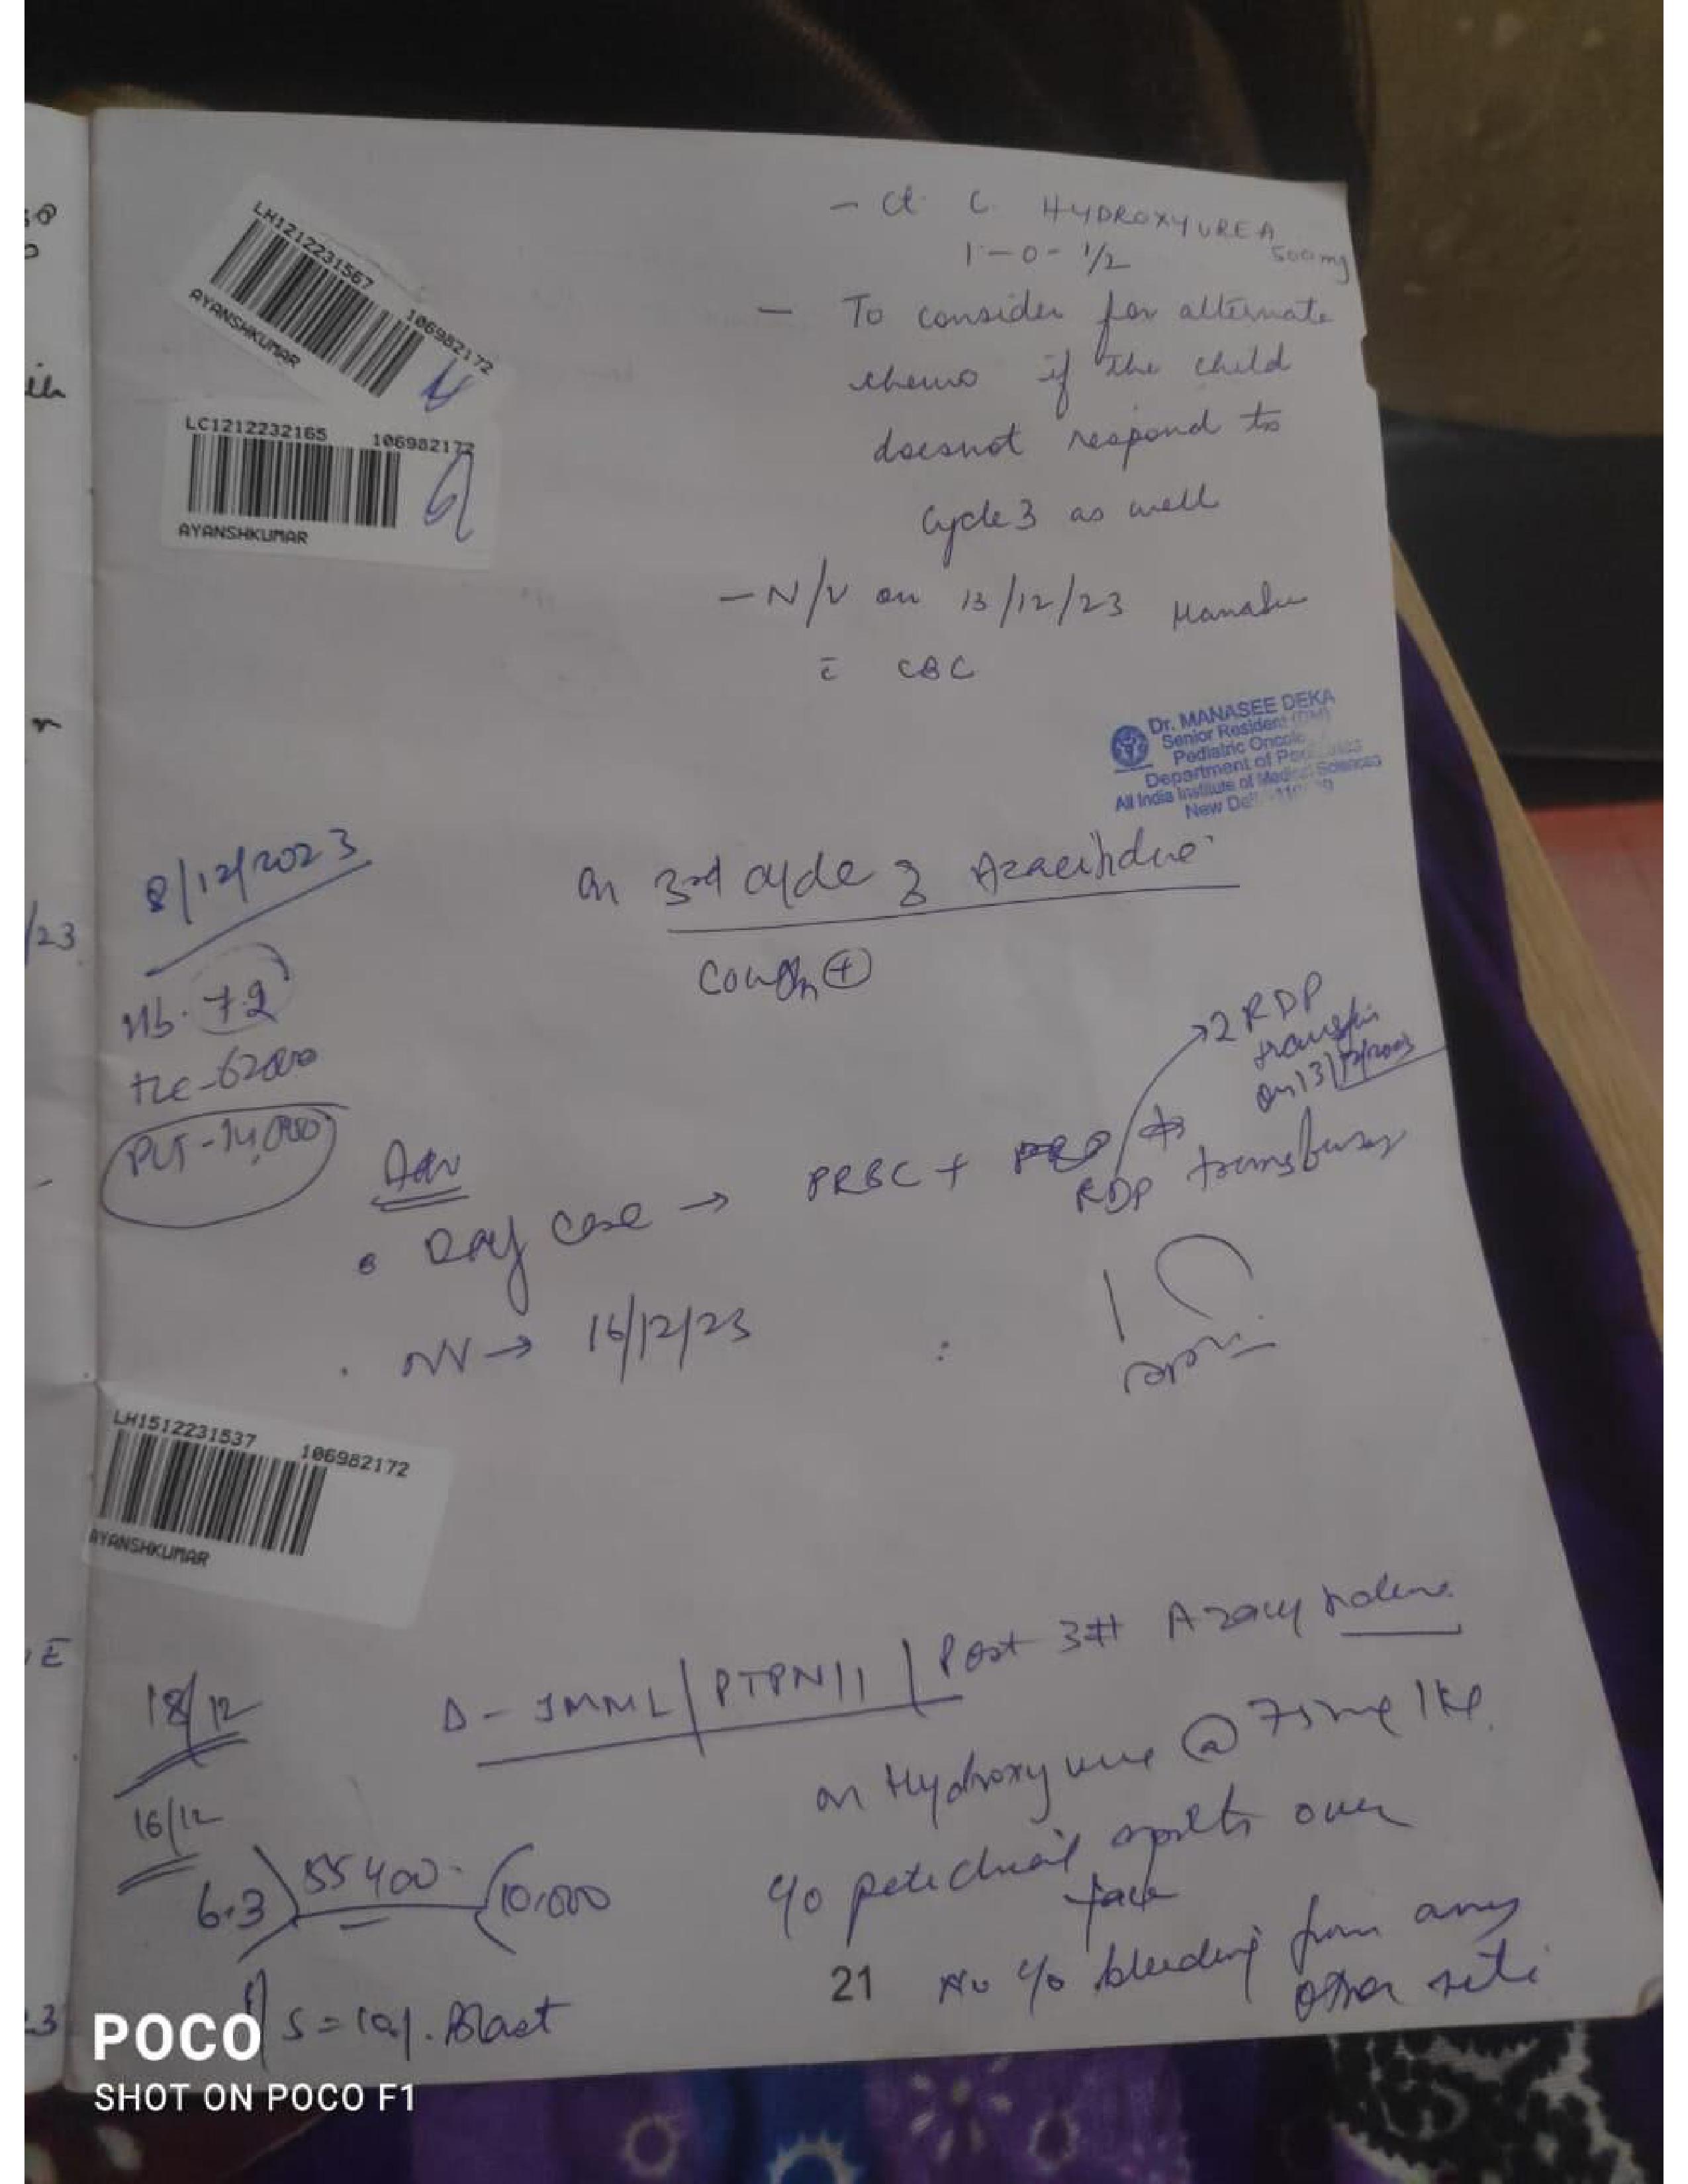 LH1212231567 106982172
AYANSHKUMAR
LC1212232165 106982172
AYANSHKUMAR
- ct. C. HYDROXYUREA 500mg
1-0-1/2
- To consider for alternate
chemo if the child
doesnot respond to
Cycle 3 as well
- N/V on 13/12/23
c̄ CBC
Dr. MANASEE DEKA
Senior Resident (DM)
Pediatric
Department of
All India Institute of Medical Sciences
New
8/12/2023
on 3rd cycle Azacitidine
Cough ⊕
Hb. 7.2
TLC-
PLT-14,000
2 RDP
on 13/12/2023
Adv
Day Case → PRBC +
RDP
NV → 16/12/23
LH1512231537 106982172
AYANSHKUMAR
18/12
D - JMML | PTPN11 | Post 3#
16/12
on Hydroxyurea @ 75mg/kg
6.3 55400 10,000
c/o petechial spots over
face
No c/o bleeding from any
other site
P/S = Blast
21
23
E
POCO
SHOT ON POCO F1